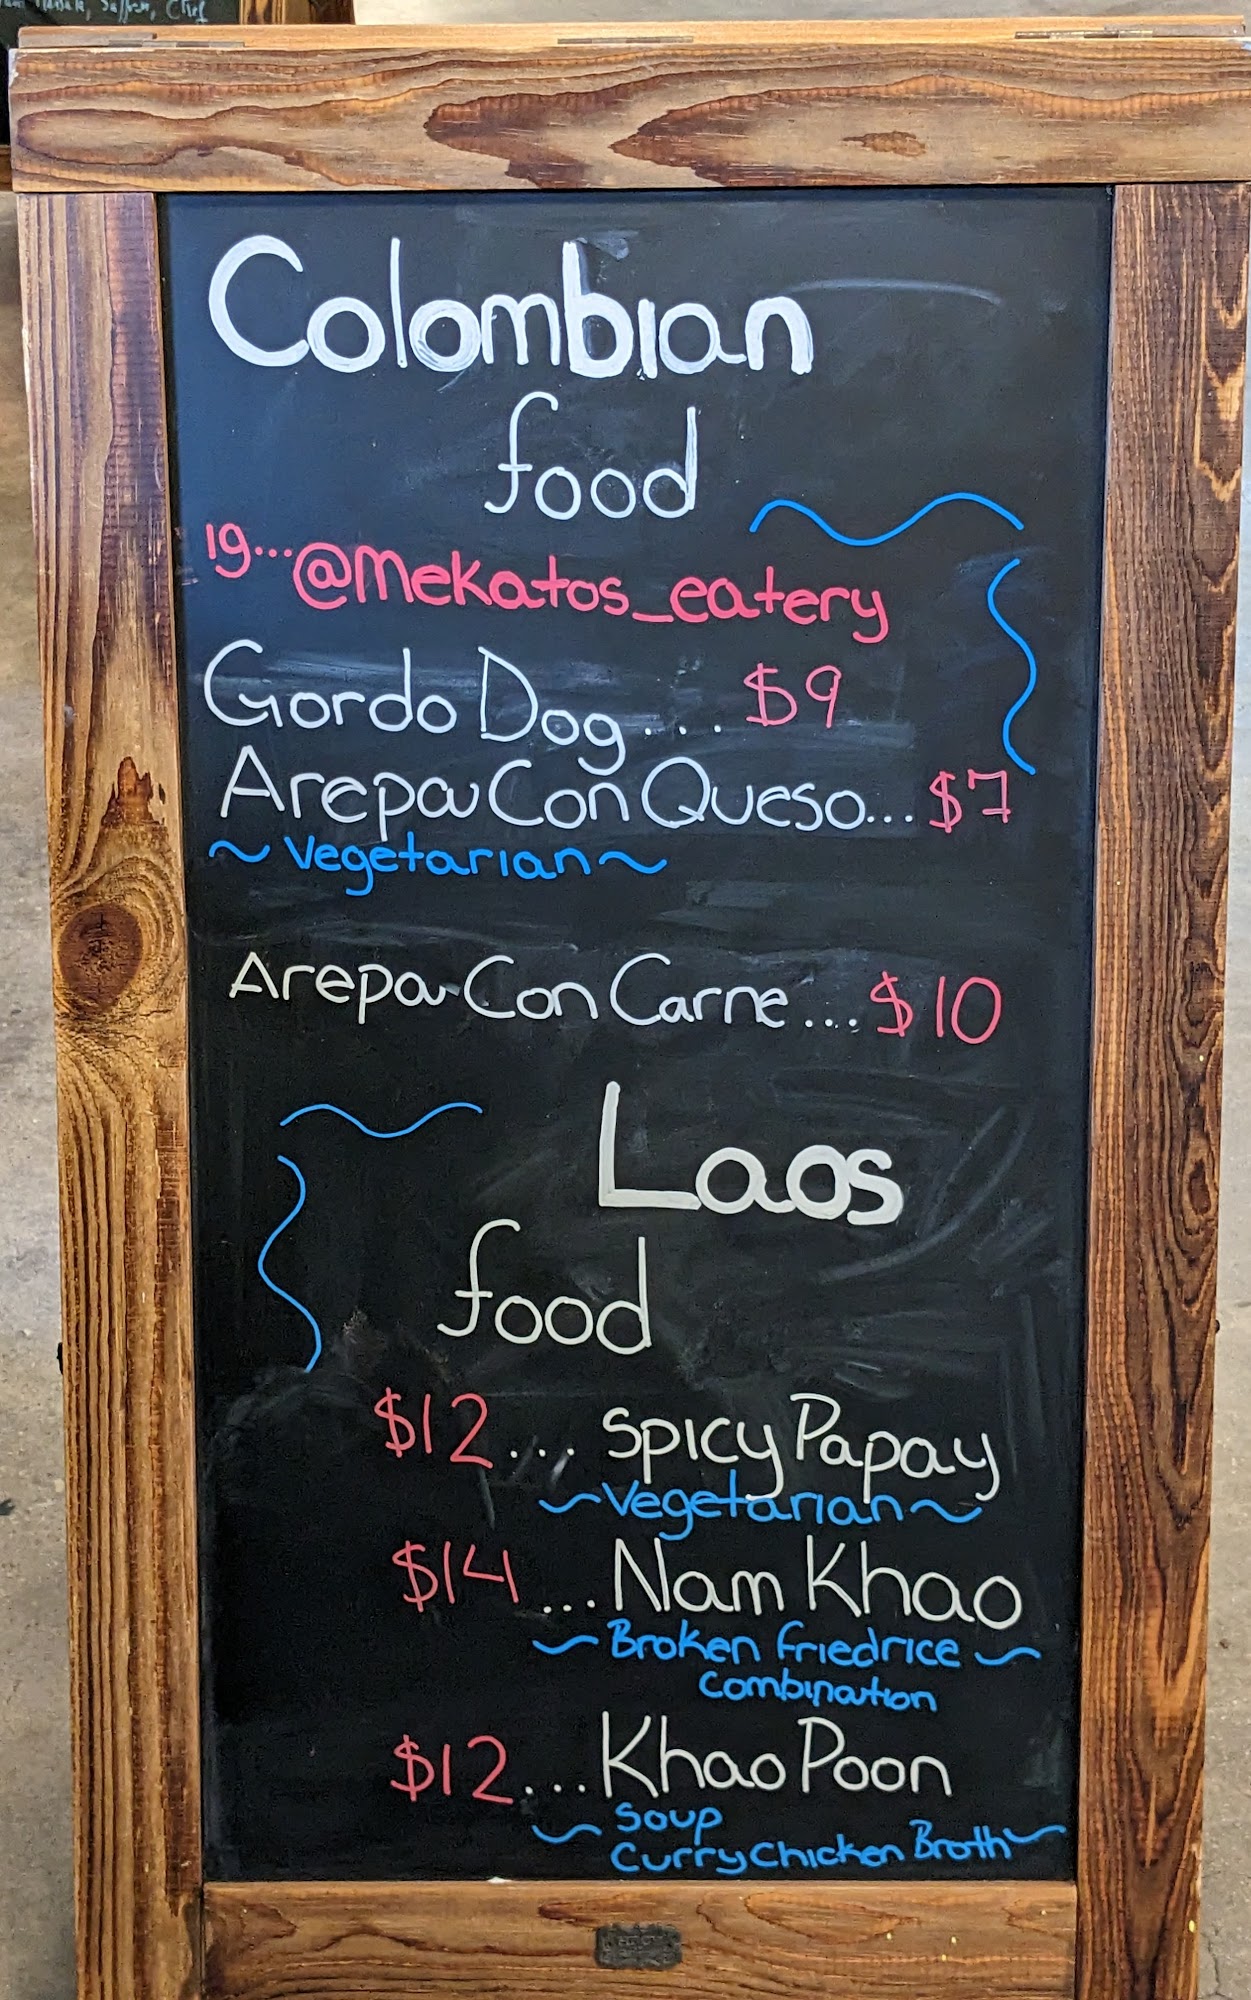 Saffron, Chef
Colombian
food
ig...@Mekatos_eatery
Gordo Dog.... $9
Arepa Con Queso... $7
~ Vegetarian ~
Arepa Con Carne ... $10
Laos
food
$12... Spicy Papay
~ Vegetarian ~
$14 ... Nam Khao
~ Broken friedrice ~
Combination
$12... Khao Poon
~ Soup
Curry Chicken Broth ~